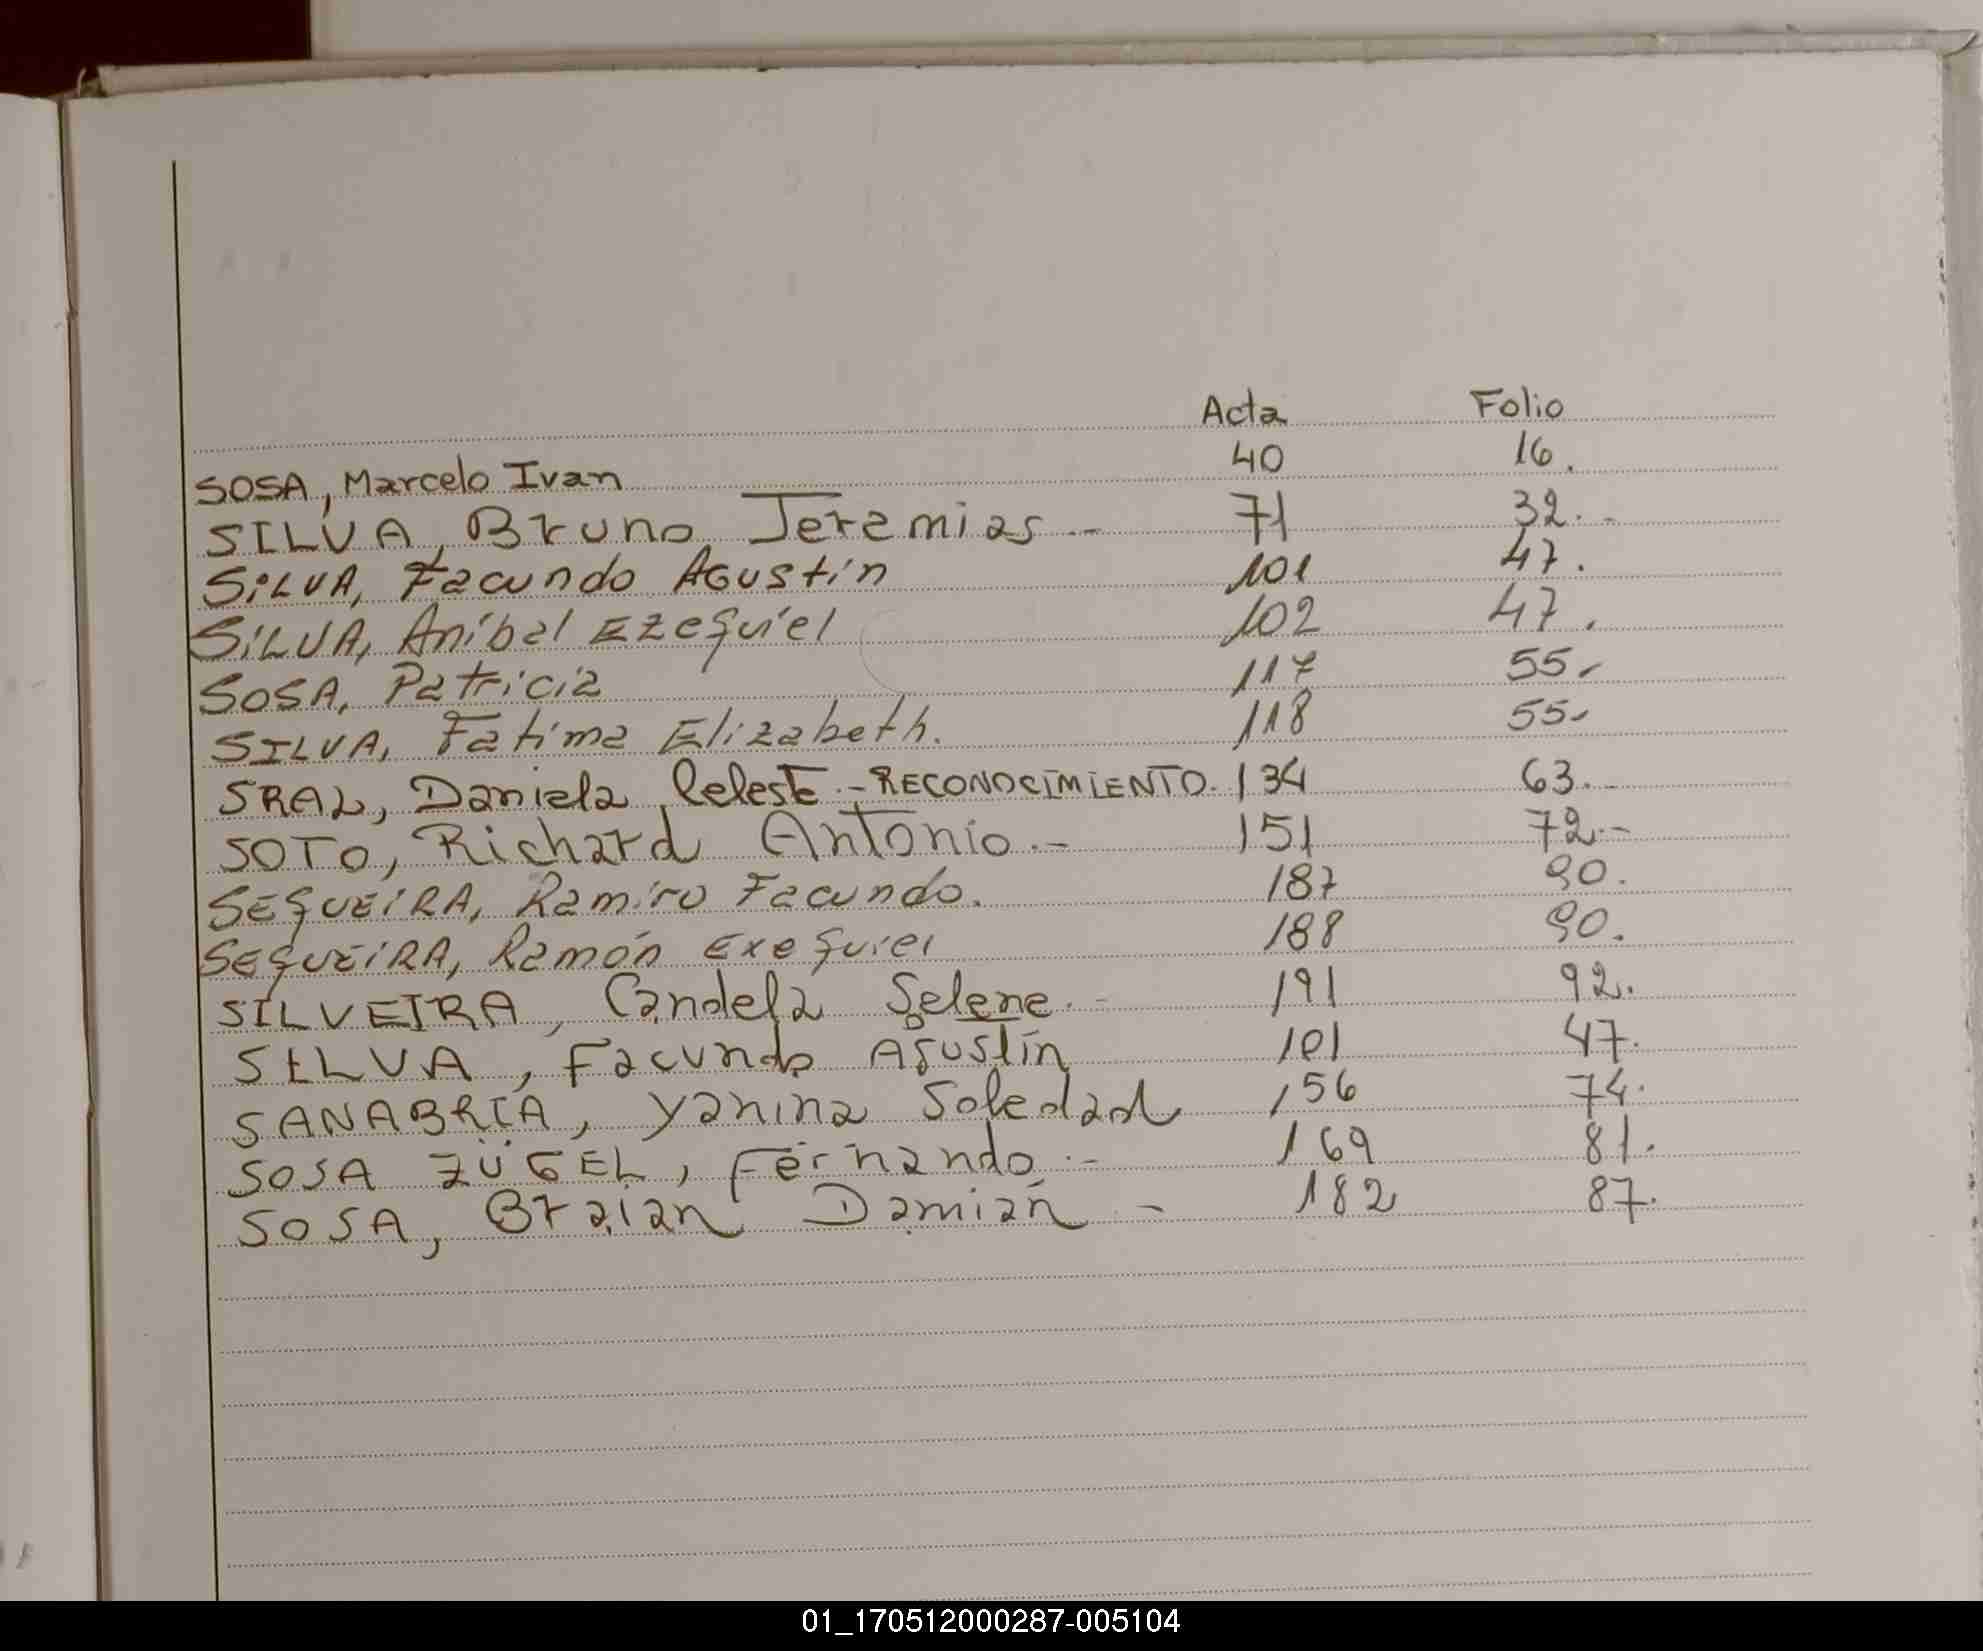 Acta Folio
SOSA, Marcelo Ivan 40 16.
SILVA, Bruno Jeremias.- 71 32.-
SiLVA, Facundo AGustín 101 47.
SiLVA, Aníbal Ezequiel 102 47.
SOSA, Patricia 117 55.
SILVA, Fatima Elizabeth. 118 55.
SRAL, Daniela Celeste.- RECONOCIMIENTO. 134 63.-
SOTO, Richard Antonio.- 151 72.-
SEqUEiRA, Ramiro Facundo. 187 90.
SEqUEiRA, Ramón Exequiel 188 90.
SILVEIRA, Candela Selene.- 191 92.
SILVA, Facundo Agustín 101 47.
SANABRIA, Yanina Soledad 156 74.
SOSA ZÜGEL, Fernando.- 169 81.
SOSA, Braian Damián - 182 87.
01_170512000287-005104